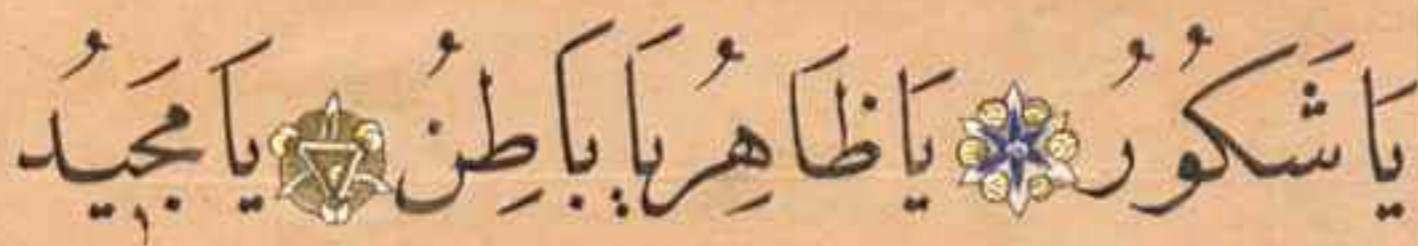 يَا شَكُورُ يَا ظَاهِرُ يَا بَاطِنُ يَا مَجَيدُ